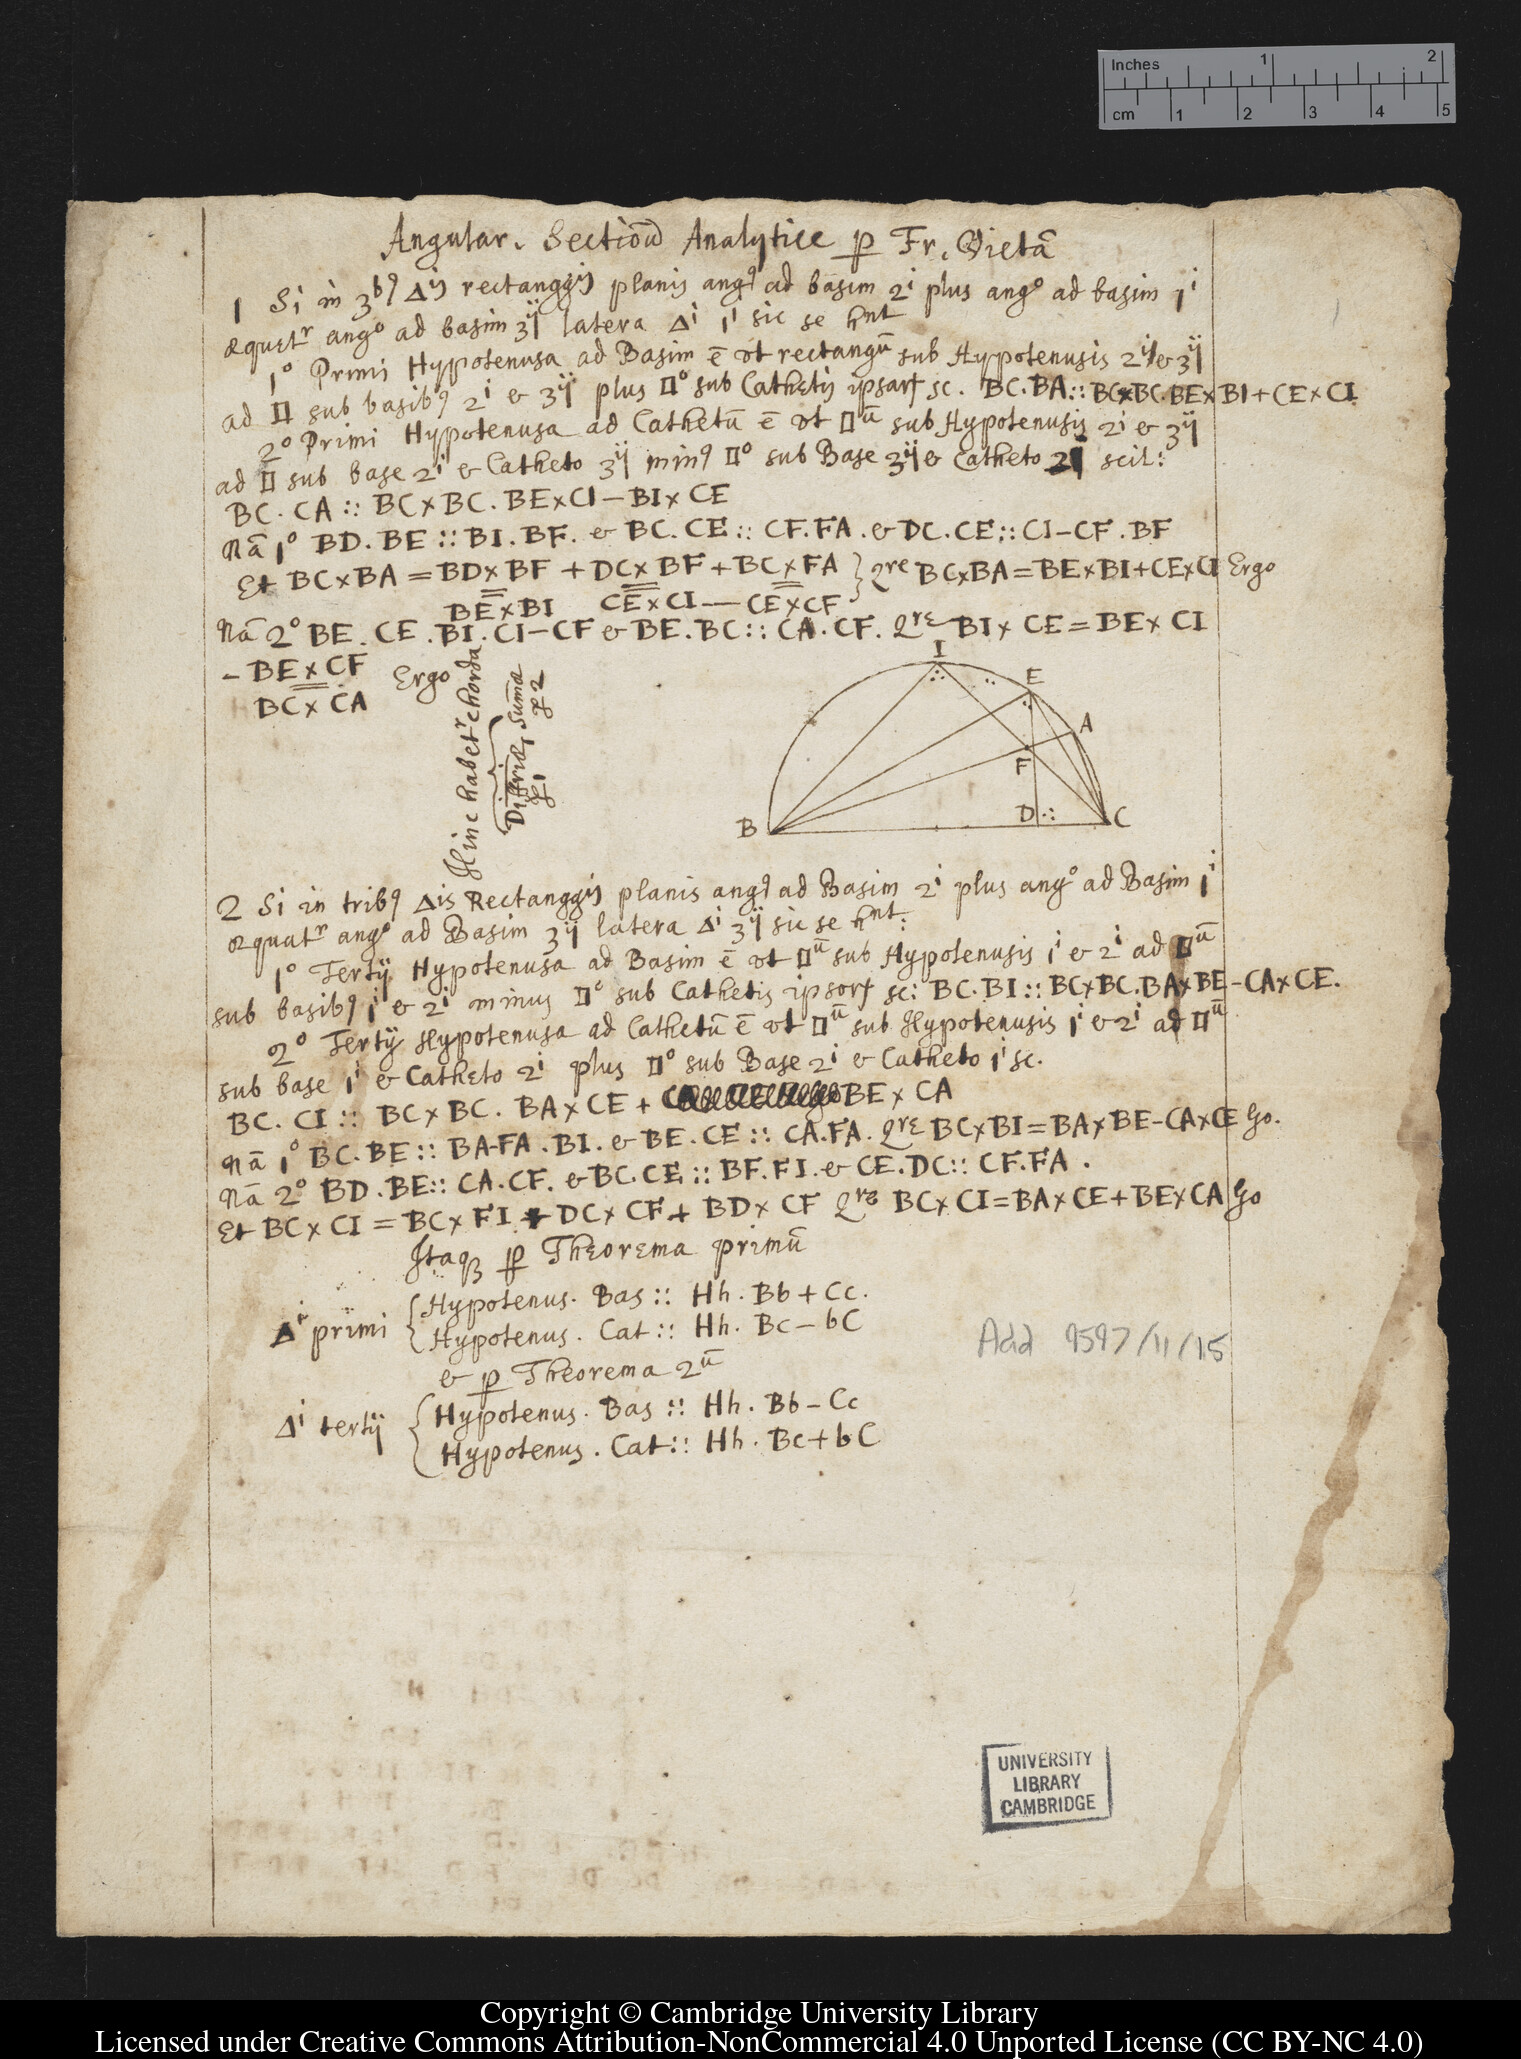 Inches 1 2
cm 1 2 3 4 5
Angular. Sectioū Analytice ꝑ Fr. Vietā
1 Si in 3bꝰ Δij rectanggij planis angꝰ ad basim 2i plus ango ad basim 1i
æquetr ango ad basim 3ij latera Δi 1i sic se hnt
1o Primi Hypotenusa ad Basim ē ut rectangū sub Hypotenusis 2i & 3ij
ad □ sub basibꝰ 2i & 3ij plus □o sub Cathetis ipsarꝭ sc. BC.BA::BC×BC.BE×BI+CE×CI
2o Primi Hypotenusa ad Cathetū ē ut □ū sub Hypotenusis 2i & 3ij
ad □ sub base 2i & Catheto 3ij minꝰ □o sub Base 3ij & Catheto 2i scil:
BC.CA::BC×BC.BE×CI−BI×CE
Nā 1o BD.BE::BI.BF. & BC.CE::CF.FA. & DC.CE::CI−CF.BF
Et BC×BA=BD×BF+DC×BF+BC×FA } Qre BC×BA=BE×BI+CE×CI Ergo
BE×BI CE×CI−CE×CF
Nā 2o BE.CE.BI.CI−CF & BE.BC::CA.CF. Qre BI×CE=BE×CI
−BE×CF Ergo
BC×CA
Hinc habetr chorda
{Differiæ, Sumæ
ꝑ 1 ꝑ 2
I
E
A
F
B D C
2 Si in tribꝰ Δis Rectanggij planis angꝰ ad Basim 2i plus ango ad Basim 1i
æquatr ango ad Basim 3ij latera Δi 3ij sic se hnt:
1o Tertij Hypotenusa ad Basim ē ut □ū sub Hypotenusis 1i & 2i ad □ū
sub basibꝰ 1i & 2i minus □o sub Cathetis ipsorꝭ sc: BC.BI::BC×BC.BA×BE−CA×CE.
2o Tertij Hypotenusa ad Cathetū ē ut □ū sub Hypotenusis 1i & 2i ad □ū
sub base 1i & Catheto 2i plus □o sub Base 2i & Catheto 1i sc.
BC.CI::BC×BC.BA×CE+ BE×CA
Nā 1o BC.BE::BA−FA.BI. & BE.CE::CA.FA. Qre BC×BI=BA×BE−CA×CE Go.
Nā 2o BD.BE::CA.CF. & BC.CE::BF.FI. & CE.DC::CF.FA.
Et BC×CI=BC×FI+DC×CF+BD×CF Qre BC×CI=BA×CE+BE×CA Go
Itaqꝫ ꝑ Theorema primū
Δi primi {Hypotenus. Bas::Hh.Bb+Cc.
Hypotenus. Cat::Hh.Bc−bC
& ꝑ Theorema 2ū
Δi tertij {Hypotenus. Bas::Hh.Bb−Cc
Hypotenus. Cat::Hh.Bc+bC
Add 9597/11/15
UNIVERSITY
LIBRARY
CAMBRIDGE
Copyright © Cambridge University Library
Licensed under Creative Commons Attribution-NonCommercial 4.0 Unported License (CC BY-NC 4.0)